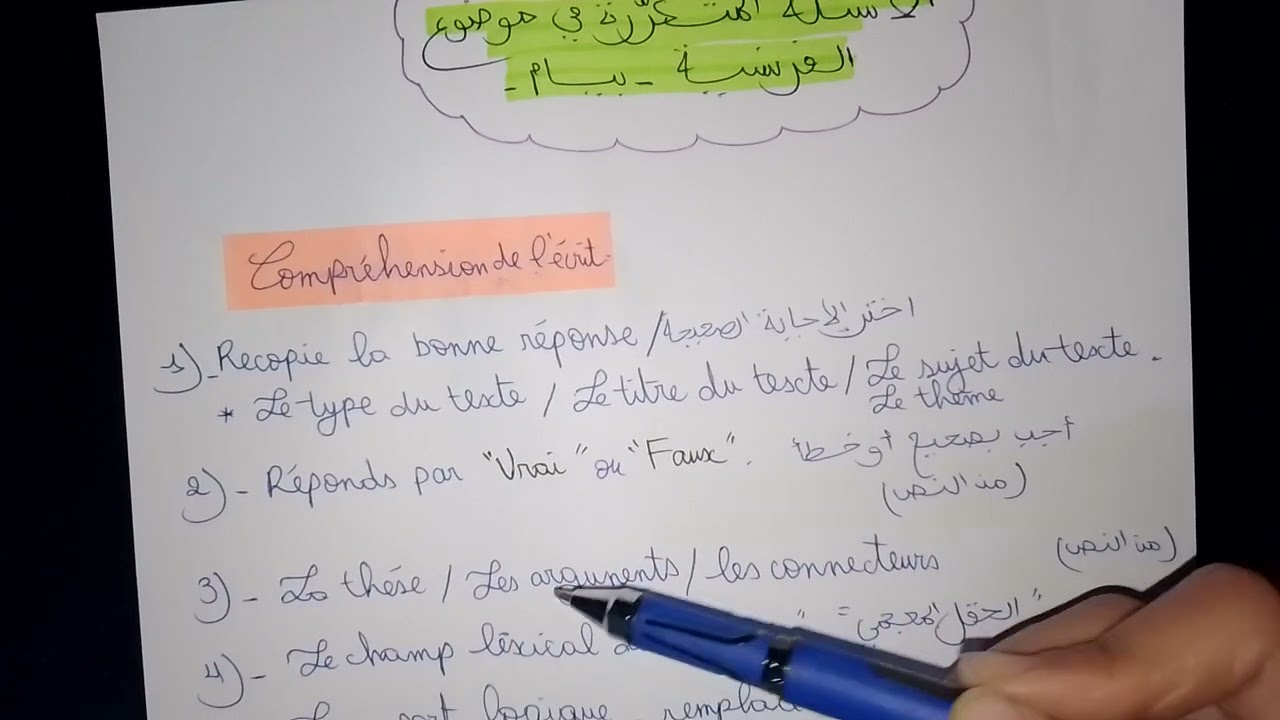 الأسئلة المتكررة في موضوع
الفرنسية - بيام -
Compréhension de l'écrit.
1)- Recopie la bonne réponse / اختر الإجابة الصحيحة
* Le type du texte / Le titre du texte / Le sujet du texte.
Le thème
2)- Réponds par "Vrai" ou "Faux". أجب بصحيح أو خطأ
(من النص)
3)- La thése / Les arguments / les connecteurs (من النص)
4)- Le champ léxical "الحقل المعجمي" =
logique remplac